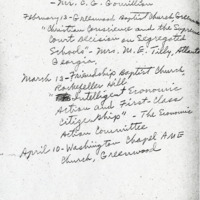 - Mrs. C. G. Gomillion
February 13 - Greenwood Baptist Church, Greenwood
"Christian Conscience and the Supreme
Court Decision on Segregated
Schools" - Mrs. M. E. Tilly, Atlanta
Georgia.
March 13 - Friendship Baptist Church,
Rockefeller Hill
"Intelligent Economic
Action and First-Class
Citizenship" - The Economic
Action Committee
April 10 - Washington Chapel AME
Church, Greenwood